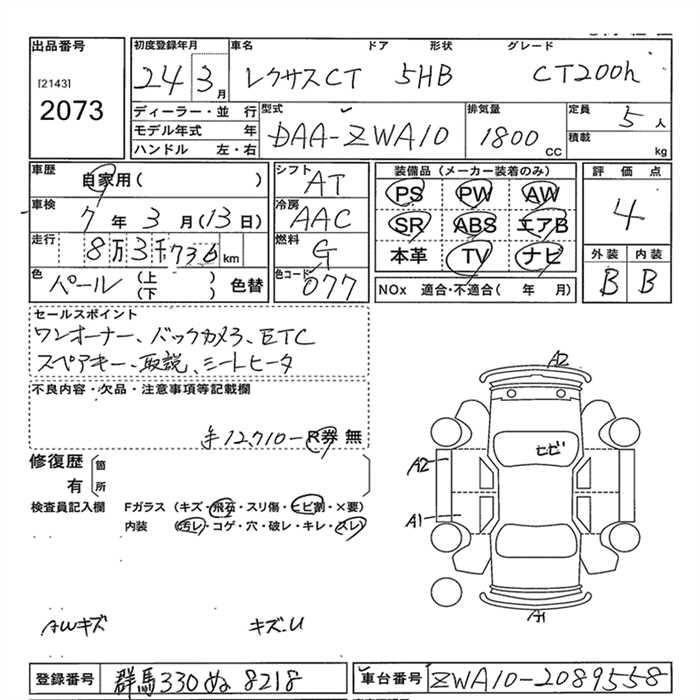 出品番号
[2143]
2073
初度登録年月 車名 ドア 形状 グレード
24 3月 レクサスCT 5HB CT200h
ディーラー・並 行
モデル年式 年
ハンドル 左・右
型式 DAA-ZWA10
排気量 1800 CC
定員 5 人
積載 kg
車歴 自家用( )
車検 7年 3月(13日)
走行 8万3千736 km
色 パール (上 下) 色替
シフト AT
冷房 AAC
燃料 G
色コード 077
装備品 (メーカー装着のみ)
PS PW AW
SR ABS エアB
本革 TV ナビ
NOx 適合・不適合( 年 月)
評価点
4
外装 内装
B B
セールスポイント
ワンオーナー、バックカメラ、ETC
スペアキー、取説、シートヒータ
不良内容・欠品・注意事項等記載欄
¥12,710- R券 無
修復歴 箇所
有
検査員記入欄 Fガラス (キズ・飛石・スリ傷・ヒビ割・×要)
内装 (汚レ・コゲ・穴・破レ・キレ・スレ)
A2
ヒビ
A2
A1
A1
AWキズ キズ・U
登録番号 群馬330ぬ8218
車台番号 ZWA10-2089558